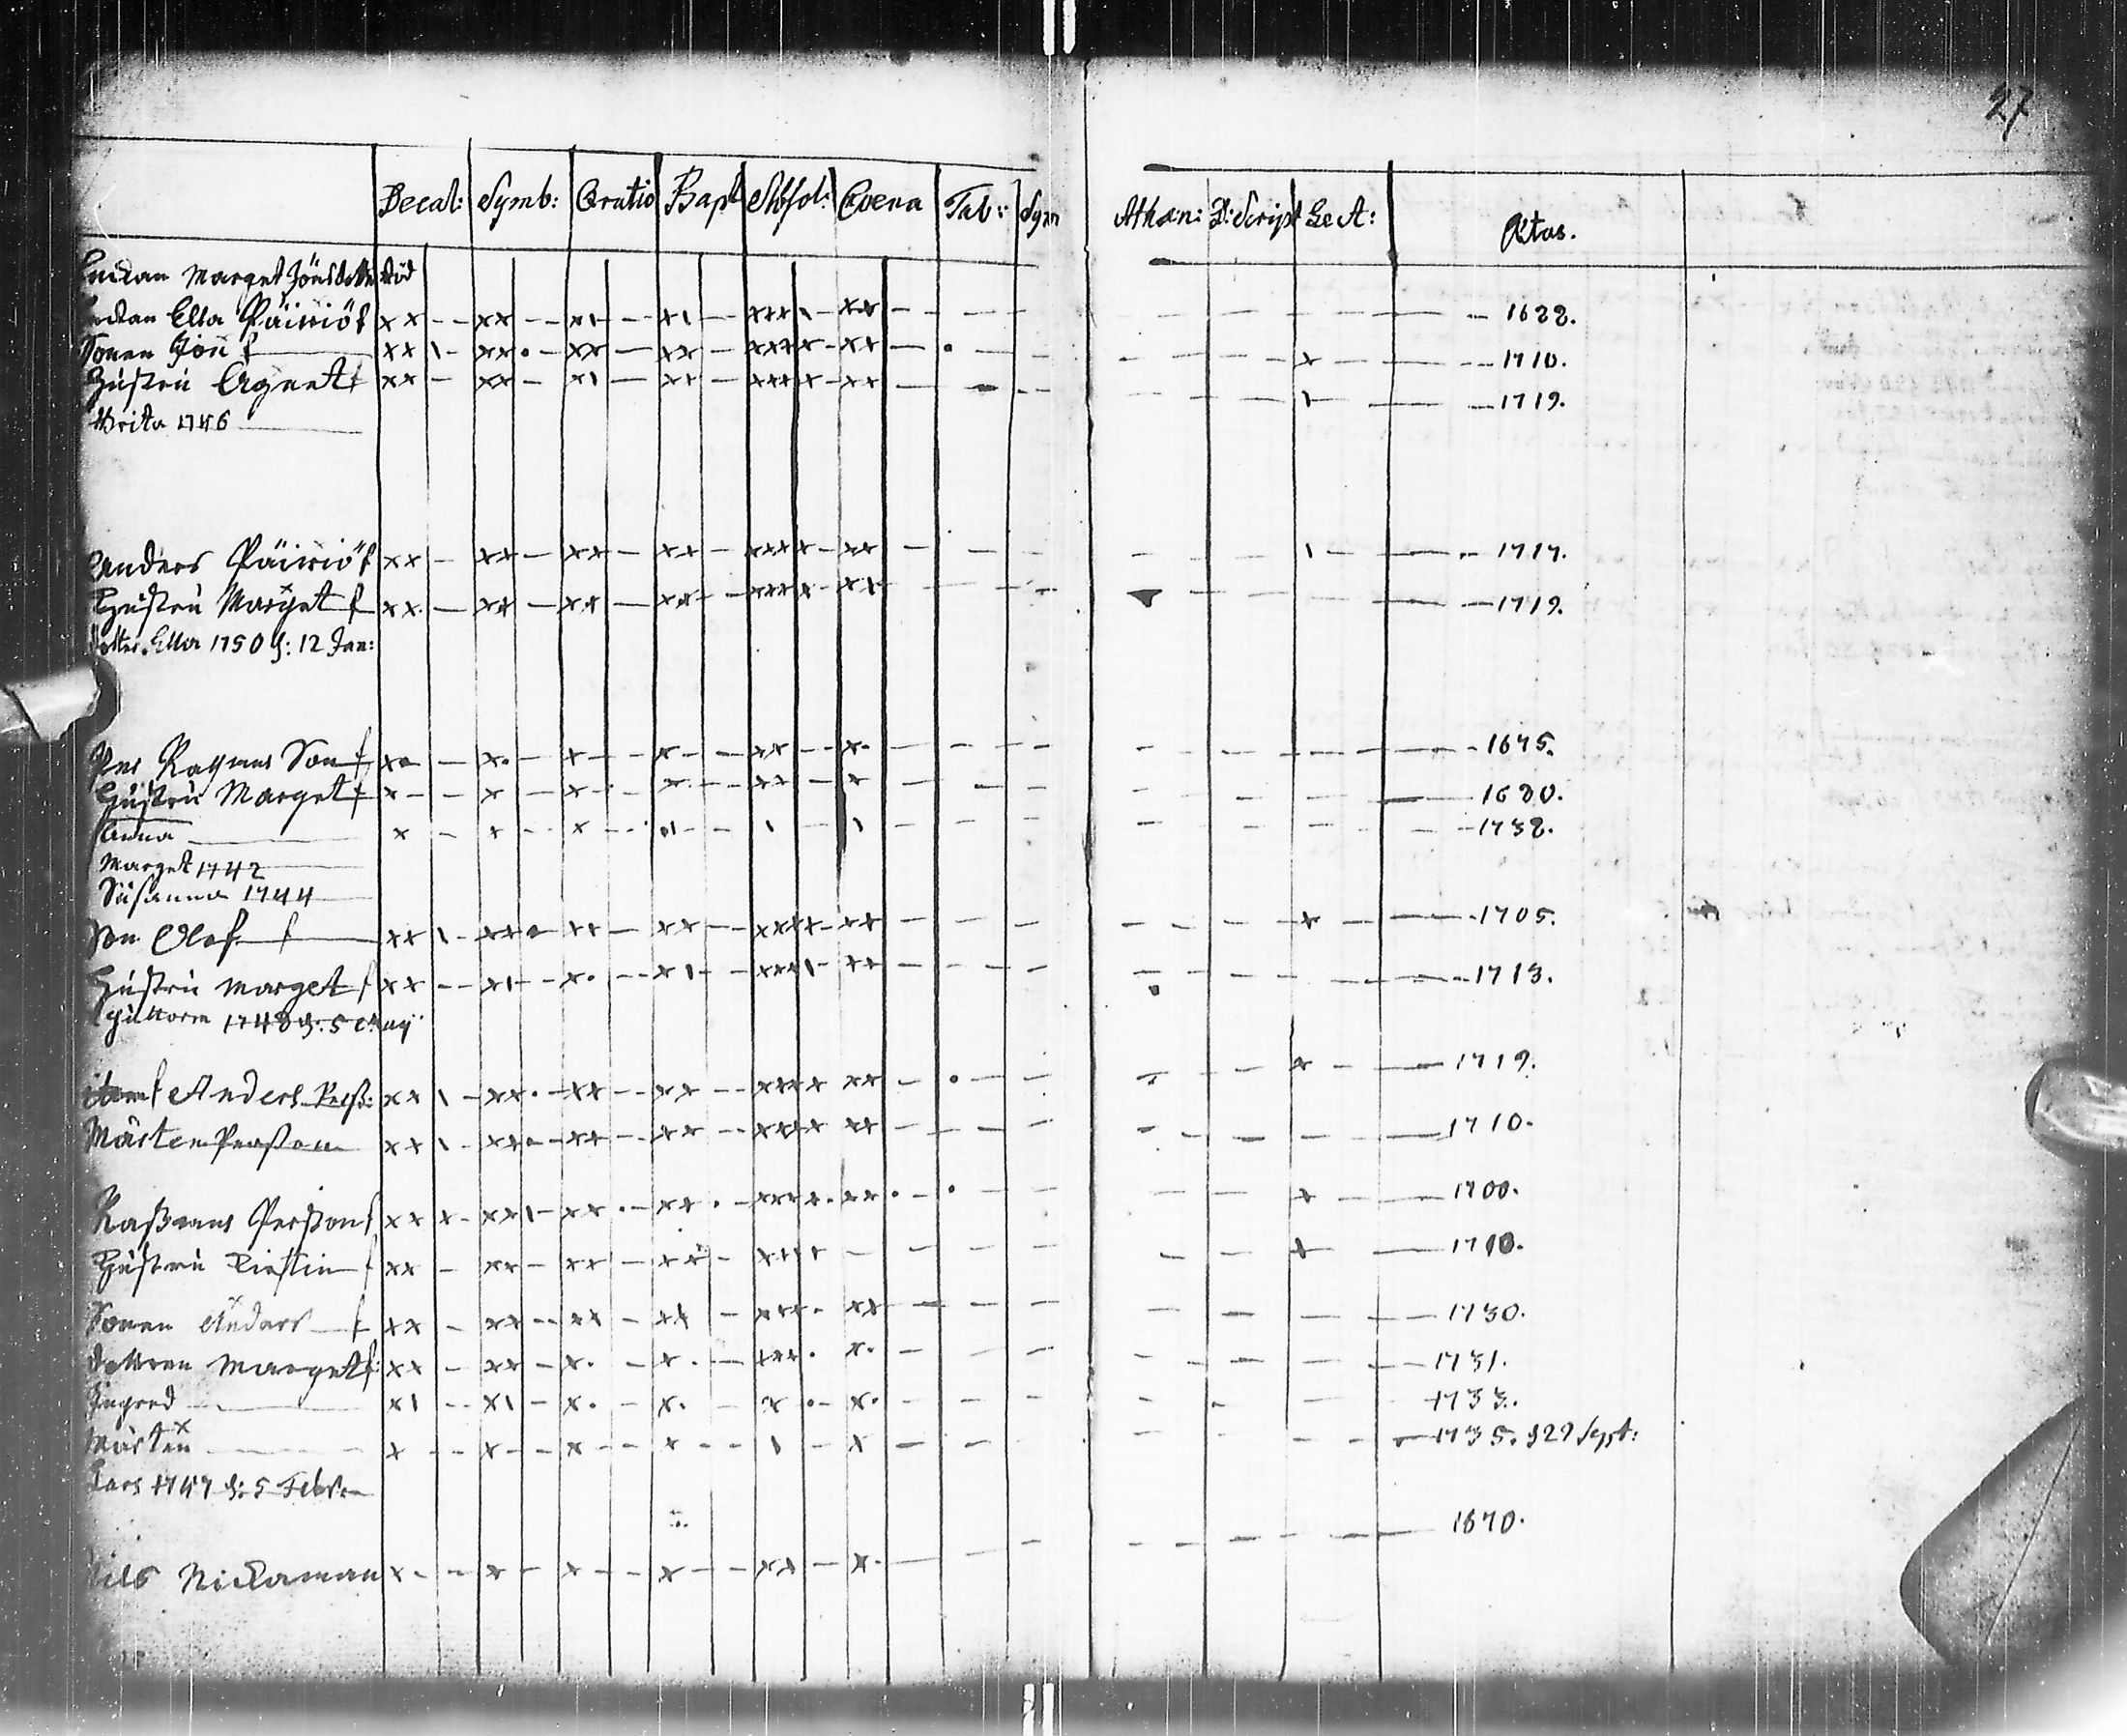 27
Decal: Symb: Oratio Bapt Absol: Coena Tab: Sym Athan: D: Script Lect: Ætas.
Enckan Marget Jönsdotter död
Enckan Ella Päiviö f xx -- xx -- x1 -- x1 -- xxx1 - xx - - - - - - - - 1688.
Sonen Jon f xx 1 - xx . - xx - xx - xxxx - xx - . - - - - - x - - - 1710.
Hustru Agnet f xx - xx - x1 - xx - xxxx - xx - - - - - - 1 - - - 1719.
Brita 1746
Anders Päiviö f xx - xx - xx - xx - xxxx - xx - - - - - 1 - - - 1717.
Hustru Marget f xx - xx - xx - xx - xxxx x1 - - - - - - - 1719.
dotter Ella 1750 d: 12 Jan:
Per Rasmus Son f x. - x. - x - x - - xx - - x. - - - - - - - - 1675.
Hustru Marget f x - - x - x - x - - xx - x - - - - - - - 1680.
Anna x - x - - x - - .1 - - 1 - 1 - - - - - - - - 1738.
Marget 1742
Susanna 1744
Son Olof f xx 1 - xxx . xx - xx - xxxx - xx - - - - - x - - - 1705.
Hustru Marget f xx -- x1 - x. - - x1 - - xxx1 - xx - - - - - - - - 1713.
Guttorm 1748 d: 5 Maij
item f Anders Perß: xx 1 - xx . - xx - - xx - - xxxx xx - . - - - - x - - 1719.
Mårten Persson xx 1 - xxx - xx - - xx - - xxxx xx - - - - - - - - 1710.
Rasmus Persson f xx x - xx1 - xx . - xx . - xxxx . xx . - . - - - - x - - 1700.
Hustru Kirstin f xx - xx - xx - xx - xxxx - - - - - x - 1710.
Sonen Anders f xx - xx -- xx - xx - xxx . xx - - - - - - - - 1730.
dottren Marget f: xx - xx - x. - x. - xxx . x. - - - - - - - 1731.
Ingred x1 - - x1 - x. - x. - x . - x. - - - - . - 1733.
Mårten x - - x - - x - - x - - 1 - x - - - - - - - 1735. d 29 Sept:
Lars 1747 d: 5 Febr.
Nils Nickaman x - - x - x - - x - - xx - x. - - - - - - - 1670.